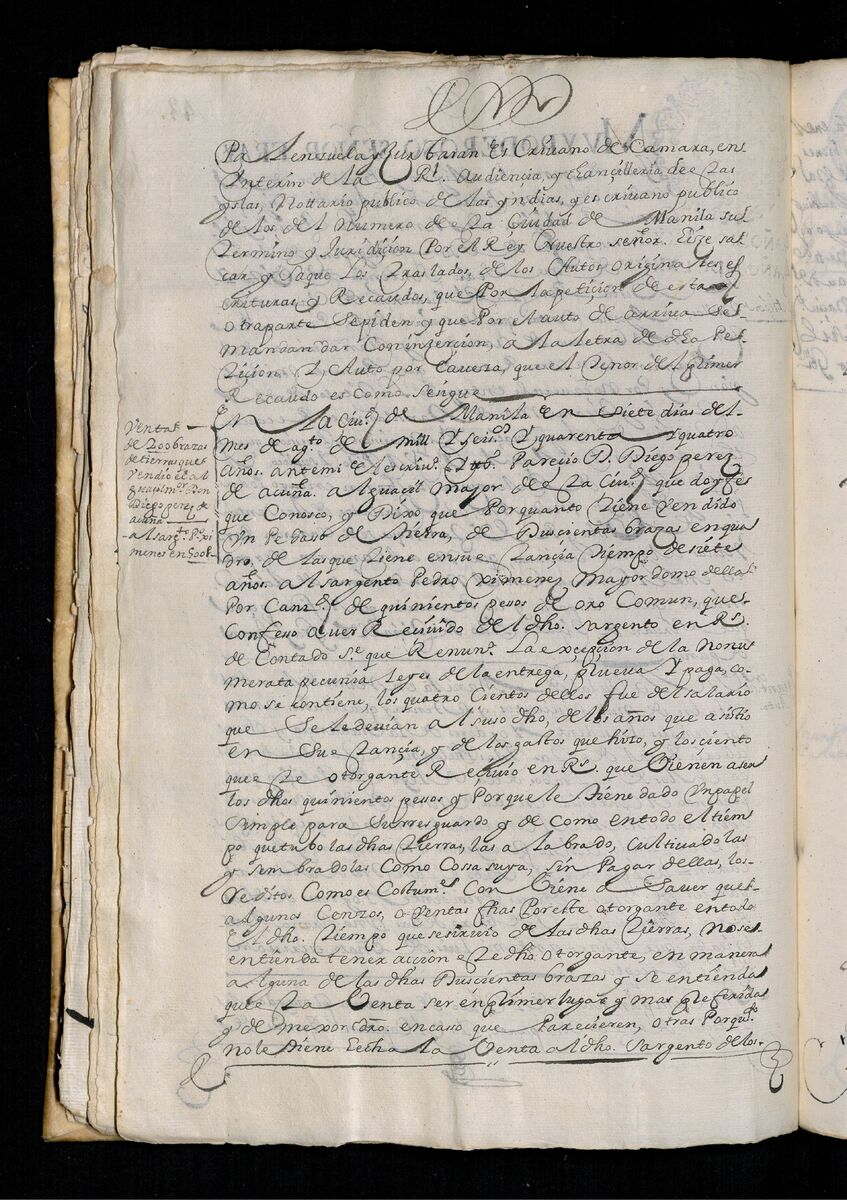 Pa Lenzuela y Zurbaran Escriuano de Camara, en
Ynterin de la Rl. Audiencia, y chançilleria de estas
yslas, Nottario publico de las yndias, y escriuano publico
de los del Numero de esta Ciudad de Manila su
termino y Juridiçion Por el Rey Nuestro señor. Hize sa-
car y saque los traslados, de los Autos originales es
crituras, y Recaudos, que Por la petiçion de esta
otra parte se piden y que Por el auto de arriua se
mandan dar Con inzerçion, a la letra de dha Pe-
tiçion y Auto por Caueza, que el tenor del primer
Recaudo es como se sigue
En la Ciud. de Manila en siete dias del
mes de agto. de mill y seisos. y quarenta y quatro
años. ante mi el escriuo. y tos. Pareçio D. Diego perez
de acuña. alguaçil mayor de esta Ciud. que doy fee
que Conosco, y Dixo que Por quanto tiene Vendido
Vn Pedaso de tierra, de Duscientas brazas en qua
dro, de las que tiene en su estançia tiempo de siete
años. al sargento Pedro Ximenez Mayordomo della
Por Cantd. de quinientos pesos de oro Comun, que
Confeso auer Reciuido del dho. sargento en Rs.
de Contado se. que Renunо. La exçepçion de la nonu
merata pecunia leyes de la entrega, prueua y paga, co-
mo se contiene, los quatro Cientos dellos fue del salario
que se le deuian al suso dho, de los años que asistio
en su estançia, y de los gastos que hizo, y los ciento
que este otorgante Reçiuio en Rs. que Vienen a ser
los dhos quinientos pesos y Porque le tiene dado Vn papel
simple para su resguardo y de como en todo el tiem
po que tubo las dhas tierras, las a labrado, Cultiuadolas
y sembradolas Como Cosa suya, sin Pagar dellas, los
reditos Como es Costume. Conviene a Sauer que
algunos Cenzos, o Ventas fhas Por este otorgante en todo
el dho. tiempo que se siruio de las dhas tierras, no se
entienda tener acçion este dho otorgante, en manera
alguna de las dhas Duscientas brazas y se entienda
que esta Venta ser en primer lugar y mas preferida
y de mexor dro. en caso que Pareçieren, otras Porq.
no le tiene Hecha la Venta al dho. Sargento de los
Venta
de 200 brazas
de tierras que
Vendio el al
guaçil mor. Don
Diego perez de
acuña
al sargto. Po. xi
menes en 500 ps